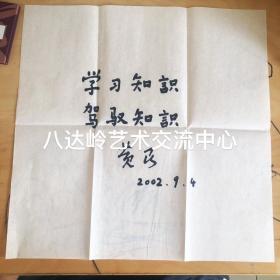 学习知識
驾驭知識
八达岭艺术交流中心
2002.9.4